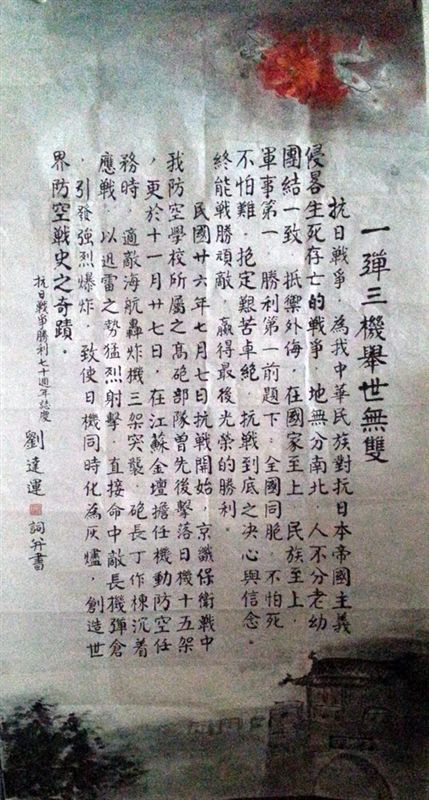 一彈三機舉世無雙
抗日戰爭，為我中華民族對抗日本帝國主義
侵畧生死存亡的戰爭，地無分南北，人不分老幼
團結一致，抵禦外侮，在國家至上，民族至上，
軍事第一，勝利第一前題下，全國同胞，不怕死
不怕難，抱定艱苦卓絕，抗戰到底之決心與信念。
終能戰勝頑敵，贏得最後光榮的勝利。
民國廿六年七月七日抗戰開始，京畿保衛戰中
我防空學校所屬之高砲部隊曾先後擊落日機十五架
，更於十一月廿七日，在江蘇金壇擔任機動防空任
務時，適敵海航轟炸機三架突襲，砲長丁作棟沉着
應戰，以迅雷之勢猛烈射擊，直接命中敵長機彈倉
，引發強烈爆炸，致使日機同時化為灰燼，創造世
界防空戰史之奇蹟。
抗日戰爭勝利七十週年誌慶
劉達運 詞并書